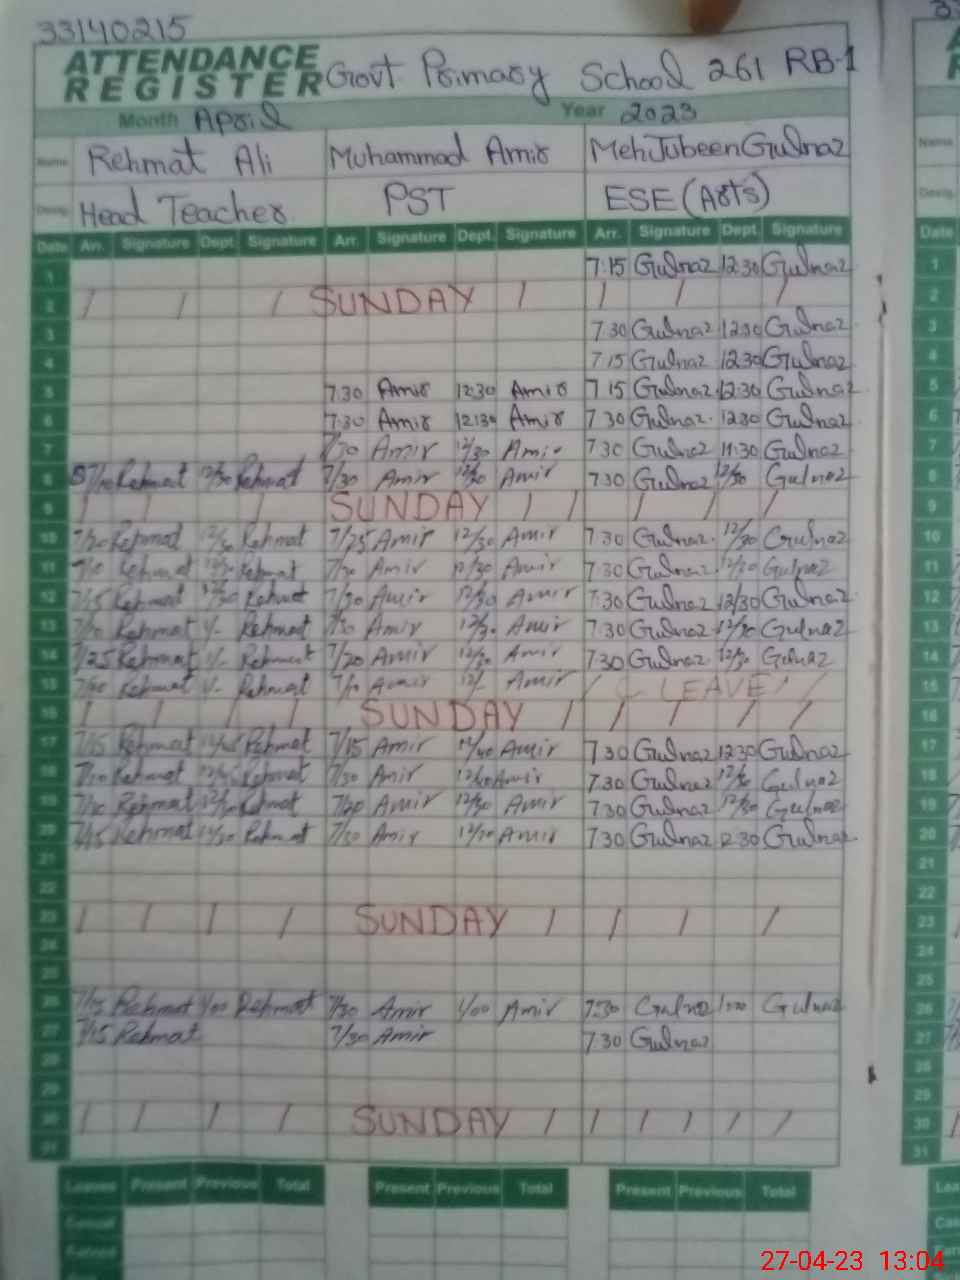 33140215
ATTENDANCE REGISTER Govt Primary School 261 RB-1
Month April Year 2023
Name Rehmat Ali Muhammad Amir MehJubeen Gulnaz
Desig. Head Teacher PST ESE (Arts)
Date Arr. Signature Dept. Signature Arr. Signature Dept. Signature Arr. Signature Dept. Signature
1 7:15 Gulnaz 12:30 Gulnaz
2 SUNDAY
3 7:30 Gulnaz 12:30 Gulnaz
4 7:15 Gulnaz 12:30 Gulnaz
5 7:30 Amir 12:30 Amir 7:15 Gulnaz 12:30 Gulnaz
6 7:30 Amir 12:30 Amir 7:30 Gulnaz 12:30 Gulnaz
7 Amir 12/30 Amir 7:30 Gulnaz 11:30 Gulnaz
8 Rehmat 12/30 Rehmat 7/30 Amir Amir 7:30 Gulnaz 12/30 Gulnaz
9 SUNDAY
10 Rehmat Rehmat 7/25 Amir 12/30 Amir 7:30 Gulnaz 12/30 Gulnaz
11 Rehmat Rehmat Amir 12/30 Amir 7:30 Gulnaz Gulnaz
12 7/15 Rehmat Rehmat 7/30 Amir 12/30 Amir 7:30 Gulnaz 12/30 Gulnaz
13 Rehmat Rehmat Amir Amir 7:30 Gulnaz 12/30 Gulnaz
14 7/25 Rehmat Rehmat 7/20 Amir Amir 7:30 Gulnaz 12/30 Gulnaz
15 Rehmat Rehmat Amir Amir LEAVE
16 SUNDAY
17 7/15 Rehmat Rehmat 7/15 Amir 12/40 Amir 7:30 Gulnaz 12:30 Gulnaz
18 Rehmat Rehmat 7/30 Amir Amir 7:30 Gulnaz Gulnaz
19 Rehmat Rehmat Amir 12/30 Amir 7:30 Gulnaz 12/30 Gulnaz
20 7/15 Rehmat Rehmat Amir Amir 7:30 Gulnaz 12:30 Gulnaz
21
22
23 SUNDAY
24
25
26 7/15 Rehmat 1/00 Rehmat 7/30 Amir 1/00 Amir 7:30 Gulnaz Gulnaz
27 7/15 Rehmat 7/30 Amir 7:30 Gulnaz
28
29
30 SUNDAY
31
Leaves Present Previous Total Present Previous Total Present Previous Total
Casual
Earned
27-04-23 13:04